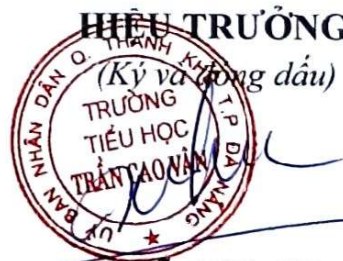 HIỆU TRƯỞNG
(Ký và đóng dấu)
ỦY BAN NHÂN DÂN Q. THANH KHÊ T.P ĐÀ NẴNG
TRƯỜNG
TIỂU HỌC
TRẦN CAO VÂN